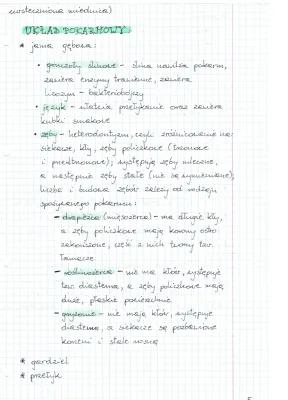 uwsteczniona miednica)
UKŁAD POKARMOWY
* jama gębowa:
• gruczoły ślinowe - ślina nawilża pokarm,
zawiera enzymy trawienne, zawiera
lizozym - bakteriobójczy
• język - ułatwia przełykanie oraz zawiera
kubki smakowe
• zęby - heterodontyzm, czyli zróżnicowanie na:
siekacze, kły, zęby policzkowe (trzonowe
i przedtrzonowe); występują zęby mleczne,
a następnie zęby stałe (nie są wymieniane);
liczba i budowa zębów zależy od rodzaju
spożywanego pokarmu:
- drapieżca (mięsożerca) - ma długie kły,
a zęby policzkowe mają korony ostro
zakończone, część z nich tworzy tzw.
łamacze
- roślinożerca - nie ma kłów, występuje
tzw. diastema, a zęby policzkowe mają
duże, płaskie powierzchnie
- gryzonie - nie mają kłów, występuje
diastema, a siekacze są pozbawione
korzeni i stale rosną
* gardziel
* przełyk